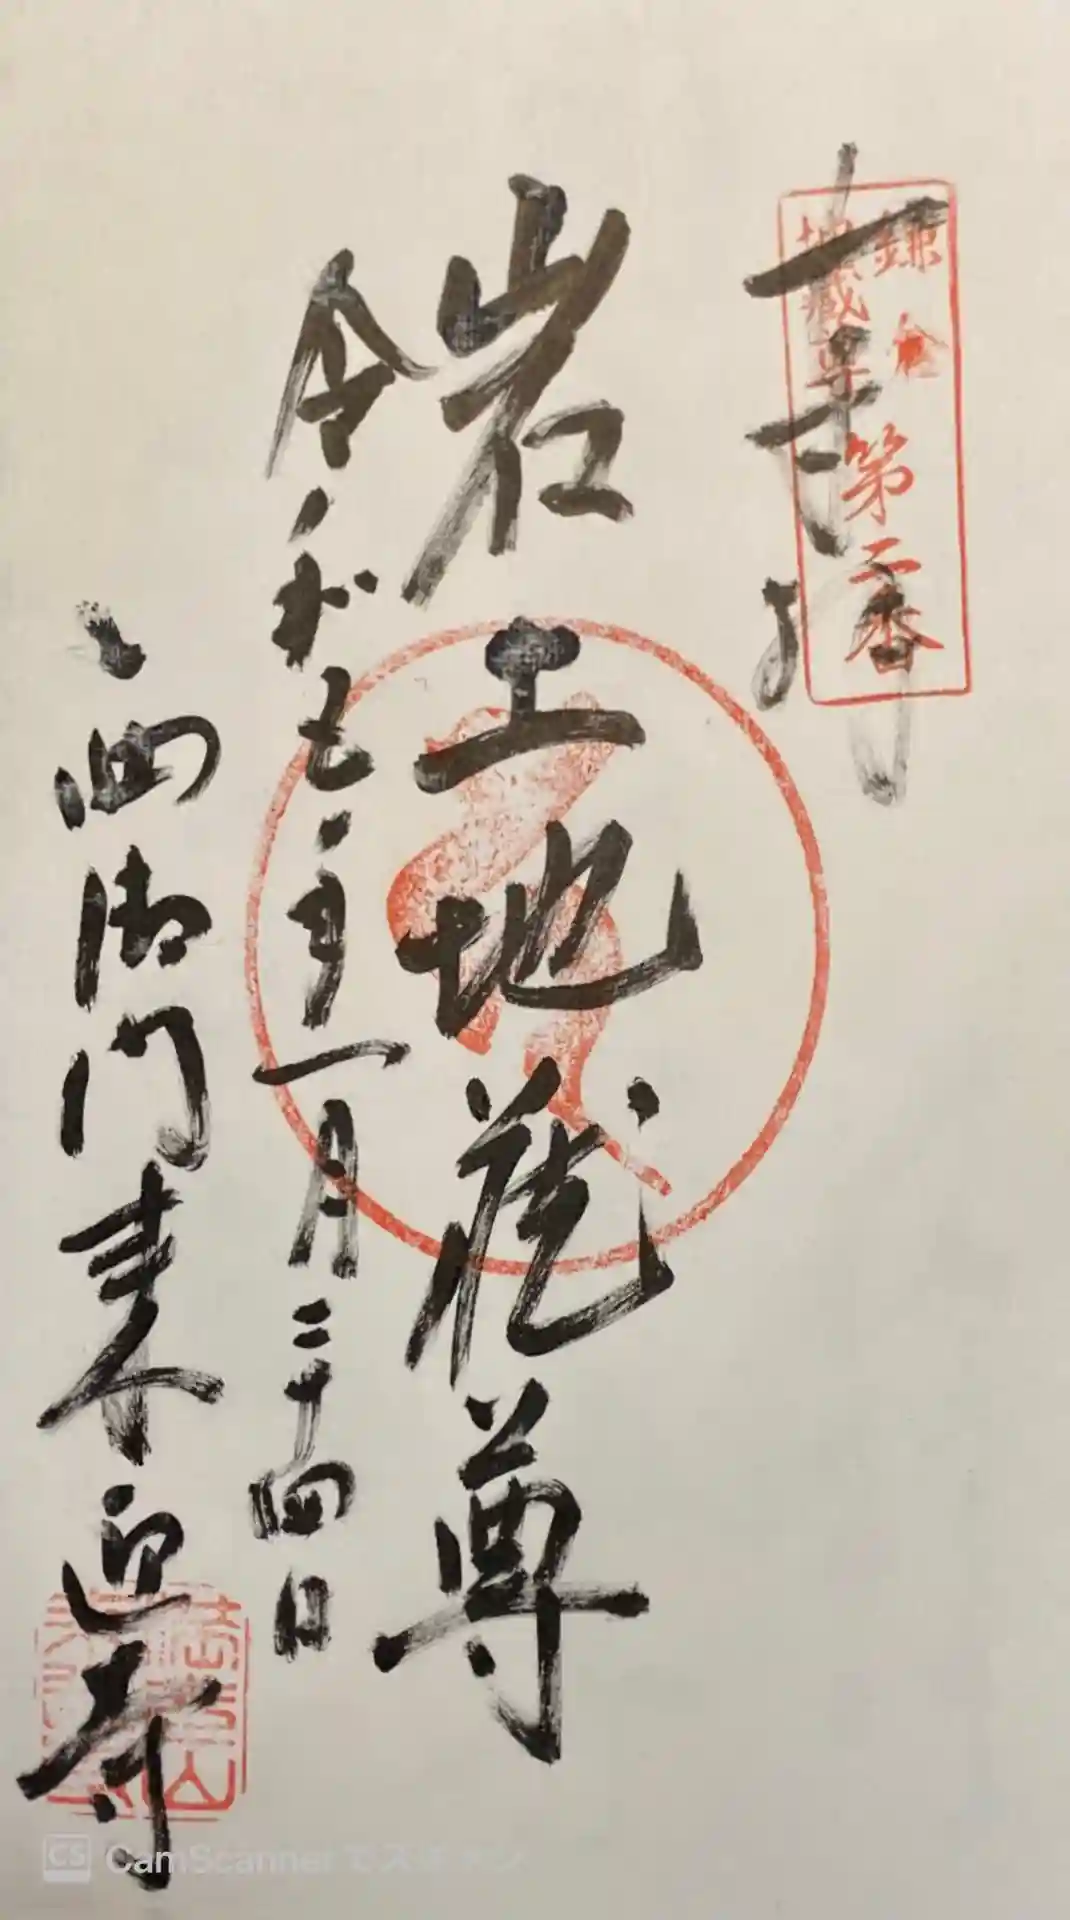 奉拝
鎌倉
地蔵尊
第二番
岩上地蔵尊
令和七年一月二十四日
西御門来迎寺
CS CamScannerでスキャン